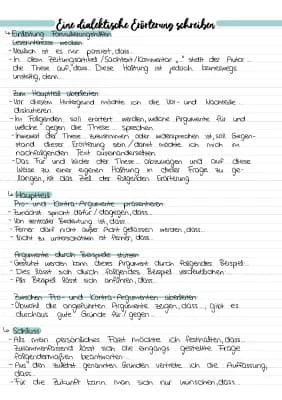 Eine dialektische Erörterung schreiben
↳ Einleitung Formulierungshilfen
Leserinteresse wecken
-Neulich ist es mir passiert, dass...
-In dem Zeitungsartikel / Sachtext / Kommentar „..." stellt der Autor ...
die These auf, dass... Diese Haltung ist jedoch keineswegs
unstrittig, denn...
Zum Hauptteil überleiten
-Vor diesem Hintergrund möchte ich die Vor- und Nachteile ...
diskutieren
-Im Folgenden soll erörtert werden, welche Argumente für und
welche gegen die These ... sprechen.
-Inwieweit der These zuzustimmen oder widersprechen ist, soll Gegen-
stand dieser Erörterung sein / damit möchte ich mich im
nachfolgenden Text auseinandersetzen.
-Das Für und Wider der These ... abzuwägen und auf diese
Weise zu einer eigenen Haltung in dieser Frage zu ge-
langen, ist das Ziel der folgenden Erörterung.
↳ Hauptteil
Pro- und Kontra-Argumente präsentieren
-Zunächst spricht dafür / dagegen, dass...
-Von zentraler Bedeutung ist, dass...
-Ferner darf nicht außer Acht gelassen werden, dass...
-Nicht zu unterschätzen ist ferner, dass...
Argumente durch Beispiele stützen
-Gestützt werden kann dieses Argument durch folgendes Beispiel...
-Dies lässt sich durch folgendes Beispiel verdeutlichen...
-Als Beispiel lässt sich anführen, dass...
Zwischen Pro- und Kontra-Argumenten überleiten
-Obwohl die angeführten Argumente zeigen, dass..., gibt es
durchaus gute Gründe für / gegen ...
↳ Schluss
-Als mein persönliches Fazit möchte ich festhalten, dass...
-Zusammenfassend lässt sich die eingangs gestellte Frage
folgendermaßen beantworten...
-Aus den zuletzt genannten Gründen vertrete ich die Auffassung,
dass...
-Für die Zukunft kann man sich nur wünschen, dass...